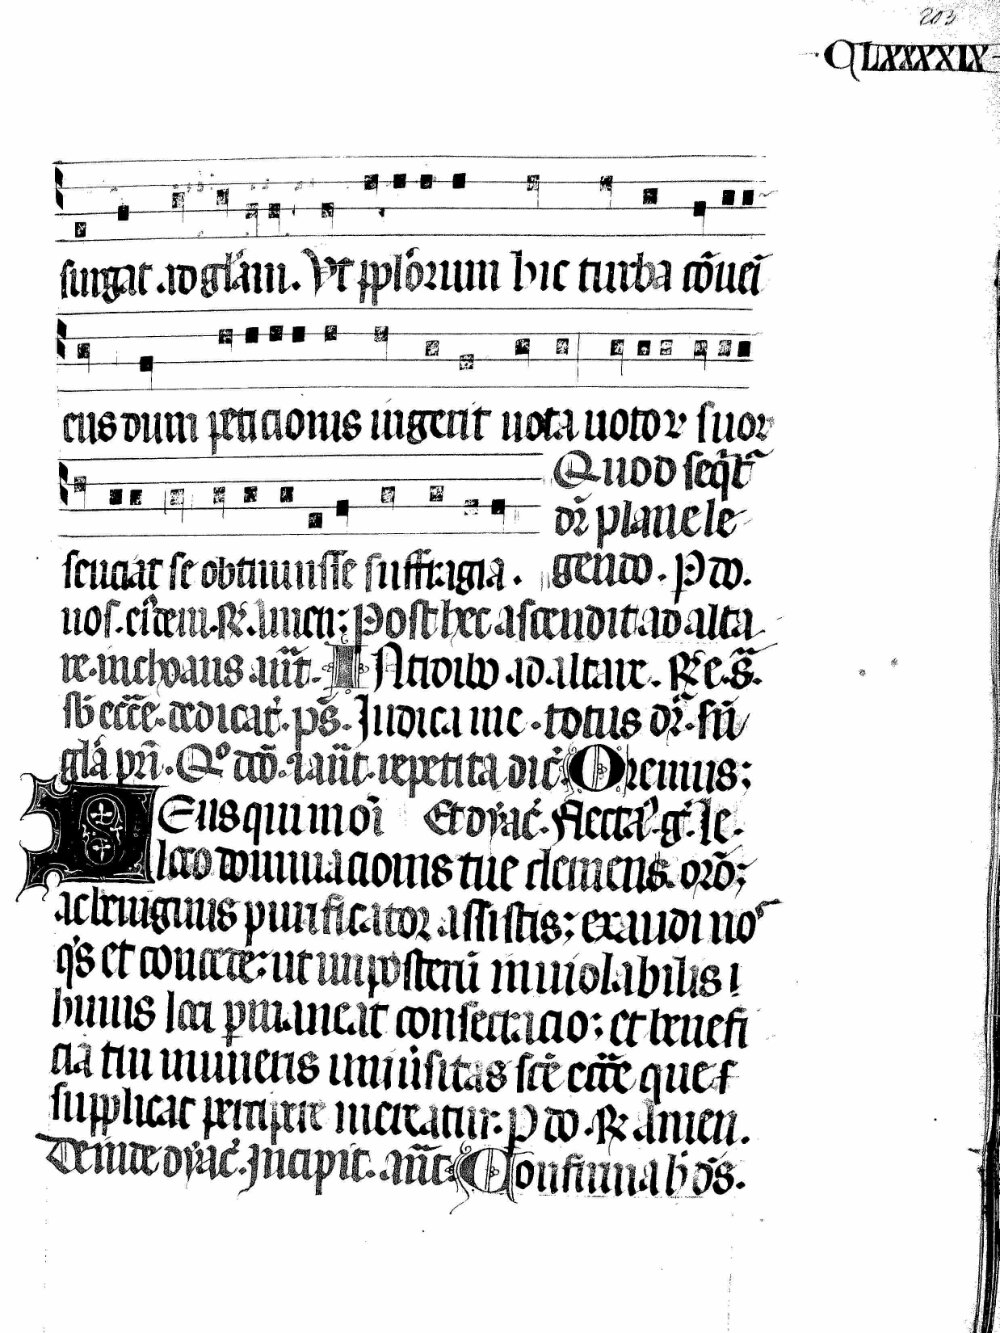 203
CLXXXXIX
surgat . ad glām . Ut pplōrum hic turba cōueī
ens dum peticionis ingerit uota uotoꝝ suoꝝ
Quod seqt̄
dr̄ plane le
senciat se obtinuisse suffragia .
gendo . P do.
nos . eūdem . R̄ . Amen : Post hec ascendit ad alta
re . inchoans ant̄ . Introibo . ad altare . R
sb eccē . dedicat̄ . ps̄ . Iudica me . totus dr̄ . sn̄
glā pri . Qo dco . ant̄ . repetita dic̄ . Oremus :
Deus qui in oī Et dyac̄ . Flectaꝰ . ḡ . le .
loco dominacionis tue clemens oro ;
ac benignus purificator assistis ; exaudi noꝰ
qs et concede : ut imposterū inuiolabilis i
huius loci pmaneat consecracio ; et benefi
cia tui muneris uniūsitas scē eccē que
supplicat percipere mereatur : P do . R Amen .
Deinde dyac̄ . Incipit . ant̄ . Confirma h ds̄ .